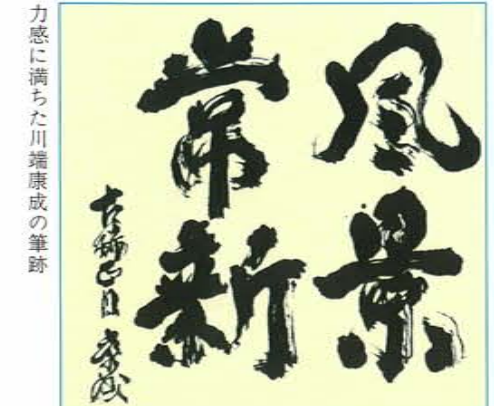 風景
常新
古稀正月 康成
力感に満ちた川端康成の筆跡